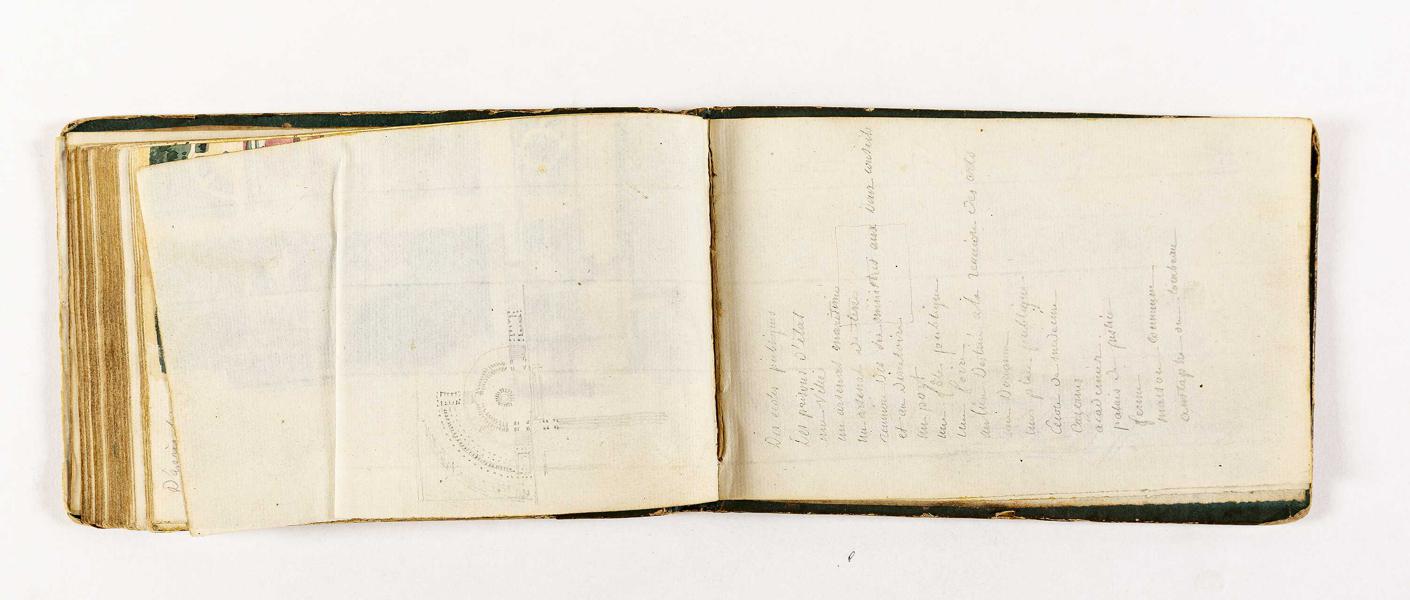 Des ecoles publiques
Des prisons d'etat
une ville
un arsenal maritime
un arsenal de terre
reunion des des ministres aux deux conseils
et au directoire
un port
une fête publique
une foire
un lieu destiné a la reunion des arts
une place publique
Ecole de medecine
Cazernes
academies
palais de justice
ferme
maison commune